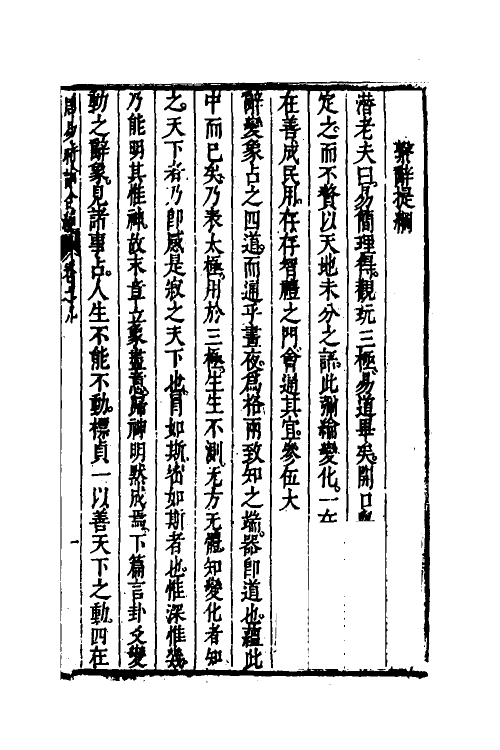 繫辭提綱
潛老夫曰易簡理得觀玩三極易道畢矣開口
定之而不贅以天地未分之語此彌綸變化一在
在善成民用存存智禮之門會通其宜參伍大
辭變象占之四道而通乎晝夜爲格兩致知之端器卽道也蘊此
中而已矣乃表太極用於三極生生不測无方无體知變化者知
之天下者乃卽感是寂之天下也冐如斯密如斯者也惟深惟幾
乃能明其惟神故末章立象盡意歸神明默成焉下篇言卦爻變
動之辭象見諸事占人生不能不動標貞一以善天下之動四在
周易時論合編 卷之九
一